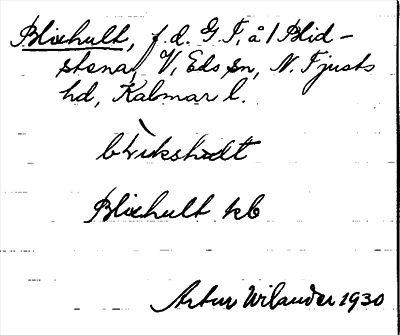 Blixhult, f.d. G T, å/Blid-
stena, V, Eds sn, N. Tjusts
hd, Kalmar l.
Blixhult kb
Artur Wilander 1930